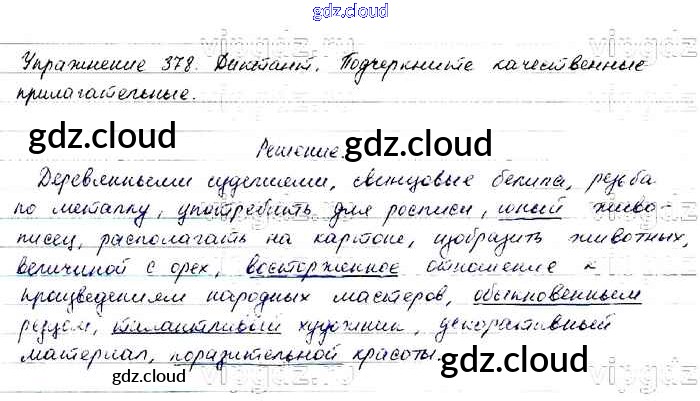 gdz.cloud
Упражнение 378. Диктант. Подчеркните качественные
прилагательные.
gdz.cloud gdz.cloud
Решение.
Деревянными изделиями, свинцовые белила, резьба
по металлу, употребить для росписи, юный живо-
писец, располагать на картоне, изобразить животных,
величиной с орех, восторженное отношение к
произведениям народных мастеров, обыкновенным
резцом, талантливый художник, декоративный
материал, поразительной красоты.
gdz.cloud gdz.cloud